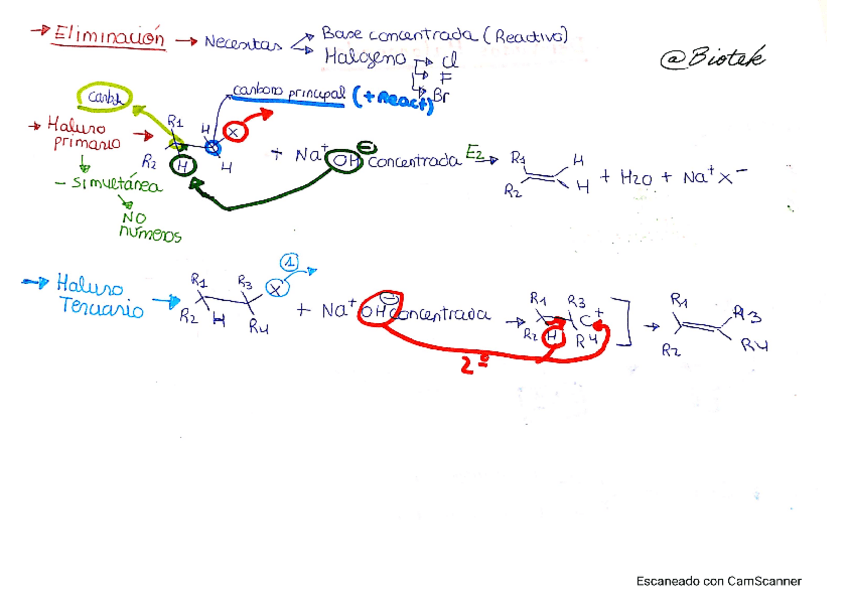 → Eliminación → Necesitas → Base concentrada (Reactivo)
→ Halogeno → Cl
→ F
→ Br
@Biotek
carbono principal (+ React)
→ Haluro primario →
R1 H X
R2 H H
+ Na+ OH⁻ concentrada E2→
R1 H
R2 H
+ H2O + Na+ X⁻
- simultánea
NO
números
→ Haluro
Terciario →
R1 R3 X 1
R2 H R4
+ Na+ OH⁻ concentrada →
R1 R3 C+
R2 H R4
] →
R1 R3
R2 R4
2º
Escaneado con CamScanner